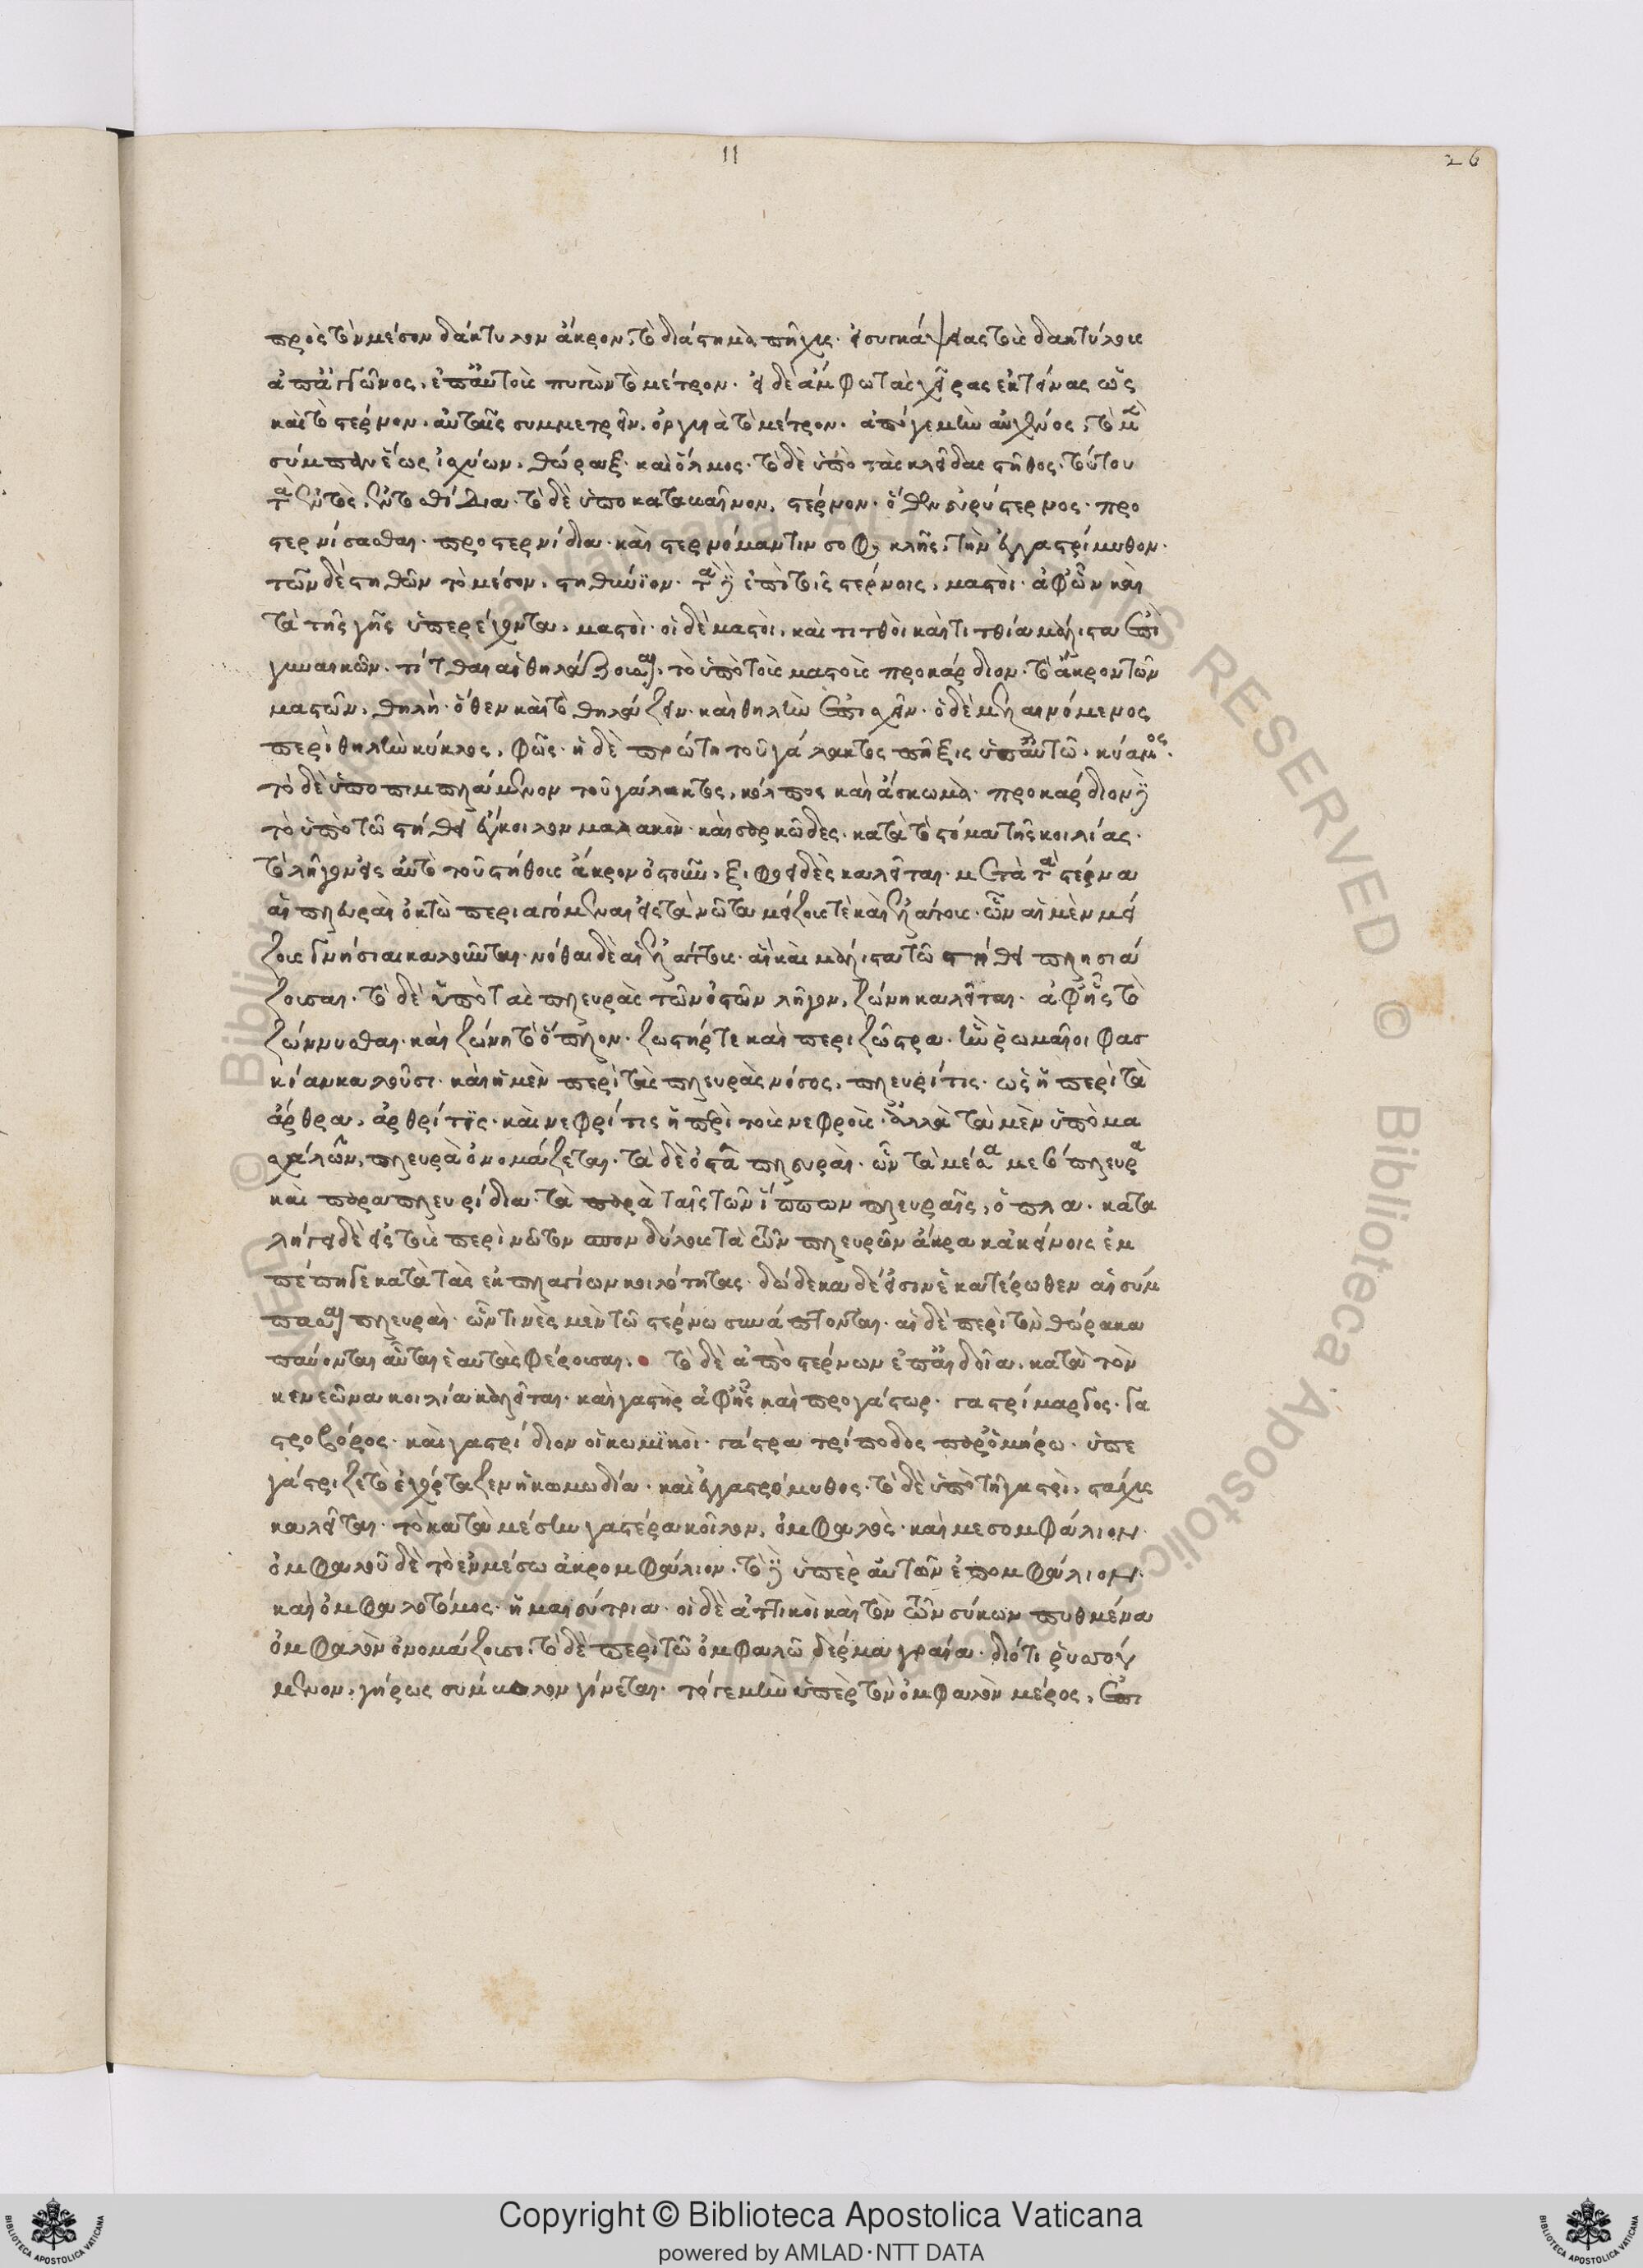 11
26
πρὸς τὸν μέσον δάκτυλον ἄκρον, τὸ διάστημα πῆχις. εἰ συγκάμψειας τοὺς δακτύλους
ἀπ' ἀγκῶνος, ἐπ' αὐτοὺς πυγὼν τὸ μέτρον. εἰ δὲ ἄμφω τὰς χεῖρας ἐκτείνας ὡς
καὶ τὸ στέρνον. αὐταῖς συμμετρεῖν, ὀργυιὰ τὸ μέτρον. ἀπό γε μὴν αὐχένος, τὸ μὲν
σύμπαν ἕως ἰσχύων, θώραξ. καὶ ὅλμος. τὸ δὲ ὑπὸ τὰς κλεῖδας στῆθος. τούτου
τὰ ἐντὸς, ἐντοσθίδια. τὸ δὲ ὑποκατακαῖνον, στέρνον. ὅθεν εὐρύστερνος. προ
στερνίσασθαι. προστερνίδια. καὶ στερνόμαντιν σοφοκλῆς, τὴν ἐγγαστρίμυθον.
τῶν δὲ στηθῶν τὸ μέσον, στηθύνϊον. τὰ δὲ ἐπὶ τοῖς στέρνοις, μαστοὶ. ἀφ' ὧν καὶ
τὰ τῆς γῆς ὑπερέχοντα, μαστοὶ. οἱ δὲ μαστοὶ, καὶ τιτθοὶ καὶ τιτθία μάλιστα ἐπὶ
γυναικῶν. τίτθαι αἱ θηλάζουσαι. τὸ ὑπὸ τοὺς μαστοὺς προκάρδιον. τὸ ἄκρον τῶν
μαστῶν, θηλή. ὅθεν καὶ τὸ θηλάζειν. καὶ θηλὴν ἐπισχεῖν. ὁ δὲ μελαινόμενος
περὶ θηλὴν κύκλος, φῶς. ἡ δὲ πρώτη τοῦ γάλακτος πῆξις ὑπ' αὐτῶ, κύαμος.
τὸ δὲ ὑποπιμπλάμενον τοῦ γάλακτος, κόλπος καὶ ἄσκωμα. προκάρδιον δὲ
τὸ ὑπὸ τῶ στήθει ἔγκοιλον μαλακὸν. καὶ σαρκῶδες. κατὰ τὸ στόμα τῆς κοιλίας.
τὸ λῆγον εἰς αὐτὸ τοῦ στήθους ἄκρον ὀστοῦν, ξιφοειδὲς καλεῖται. μετὰ τὰ στέρνα
αἱ πλευραὶ ὀκτὼ περιαγόμεναι εἰς τὰ νῶτα μείζους τὲ καὶ ἐλάττους. ὧν αἱ μὲν μεί
ζους γνήσιαι καλοῦνται. νόθαι δὲ αἱ ἐλάττους. αἳ καὶ μάλιστα τῶ στήθει πλησιά
ζουσαι. τὸ δὲ ὑπὸ τὰς πλευρὰς τῶν ὀστῶν λῆγον, ζώνη καλεῖται. ἀφ' ἧς τὸ
ζώννυσθαι. καὶ ζώνη τὸ ὅπλον. ζωστήρ τε καὶ περιζῶστρα. ἣν ῥωμαῖοι φασ
κίαν καλοῦσι. καὶ ἡ μὲν περὶ τὰς πλευρὰς νόσος, πλευρίτις. ὡς ἡ περὶ τὰ
ἄρθρα, ἀρθρίτις. καὶ νεφρίτις ἡ περὶ τοὺς νεφροὺς. ἀλλὰ τὰ μὲν ὑπὸ μα
σχαλῶν, πλευρὰ ὀνομάζεται. τὰ δὲ ὀστᾶ πλευραὶ. ὧν τὰ μέσα μεσόπλευρα
καὶ παραπλευρίδια. τὰ παρὰ ταῖς τῶν ἵππων πλευραῖς, ὅπλα. κατα
λήγει δὲ εἰς τοὺς περὶ νῶτον σπονδύλους τὰ τῶν πλευρῶν ἄκρα κἀκείνοις ἐμ
πέπηγε κατὰ τὰς ἐκ πλαγίων κοιλότητας. δώδεκα δέ εἰσιν ἑκατέρωθεν αἱ σύμ
πασαι πλευραὶ. ὧν τινὲς μὲν τῶ στέρνω συνάπτονται. αἱ δὲ περὶ τὸν θώρακα
παύονται αὗται ἑαυτὰς φέρουσαι. τὸ δὲ ἀπὸ στέρνων ἐπ' αἰδοῖα, κατὰ τὸν
κενεῶνα κοιλία καλεῖται. καὶ γαστὴρ ἀφ' ἧς καὶ προγάστωρ. γαστρίμαργος. γα
στροβόρος. καὶ γαστρίδιον οἱ κωμϊκοὶ. γάστρα τρίποδος παρ' ὁμήρω. ὑπε
γάστριζε τὸ ἐχόρταζεν ἡ κωμωδία. καὶ ἐγγαστρόμυθος. τὸ δὲ ὑπὸ τῆ γαστρὶ, στάχις
καλεῖται. τὸ κατὰ μέσην γαστέρα κοῖλον, ὀμφαλὸς. καὶ μεσομφάλιον.
ὀμφαλοῦ δὲ τὸ ἐν μέσω ἀκρομφάλιον. τὸ δὲ ὑπὲρ αὐτῶν ἐπομφάλιον.
καὶ ὀμφαλοτόμος. ἡ μαιεύτρια. οἱ δὲ ἀττικοὶ καὶ τὸν τῶν σύκων πυθμένα
ὀμφαλὸν ὀνομάζουσι. τὸ δὲ περὶ τῶ ὀμφαλῶ δέρμα γραῖα. διότι ῥυπού
μενον, γήρως σύμβολον γίνεται. τό γε μὴν ὑπὲρ τὸν ὀμφαλὸν μέρος, ἐπι
Copyright © Biblioteca Apostolica Vaticana
powered by AMLAD·NTT DATA